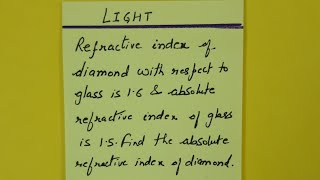 LIGHT
Refractive index of
diamond with respect to
glass is 1.6 & absolute
refractive index of glass
is 1.5. Find the absolute
refractive index of diamond.